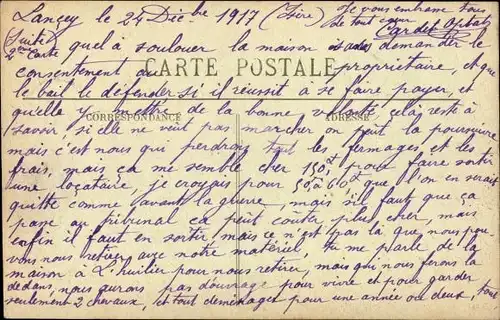 Lancey le 24 Décbre 1917 (Isère) Je vous embrasse tous
de tout cœur
(Suite quel à soulouer la maison sans demander le
2ème Carte
consentement au propriétaire, et que
CARTE POSTALE
le bail le défender si il réussit à se faire payer, et
qu'elle y mettre de la bonne volonté, cela reste à
CORRESPONDANCE ADRESSE
savoir si elle ne veut pas marcher on peut la poursuivre
mais c'est nous que perdrons tout les fermages et les
frais, mais ça me semble cher 150f pour faire sortir
une locataire, je croyais pour 50 à 60f que l'on en serait
quitte comme avant la guerre, mais si il faut que ça
passe au tribunal ça peut coûter plus cher, mais
enfin il faut en sortir mais ce n'est pas là que nous pou-
vons nous retirer avec notre matériel, tu me parle de la
maison à L'huilier pour nous retirer, mais qui nous ferons là
dedans, nous aurons pas d'ouvrage pour vivre et pour garder
seulement 2 chevaux, et tout déménager pour une année ou deux, tout